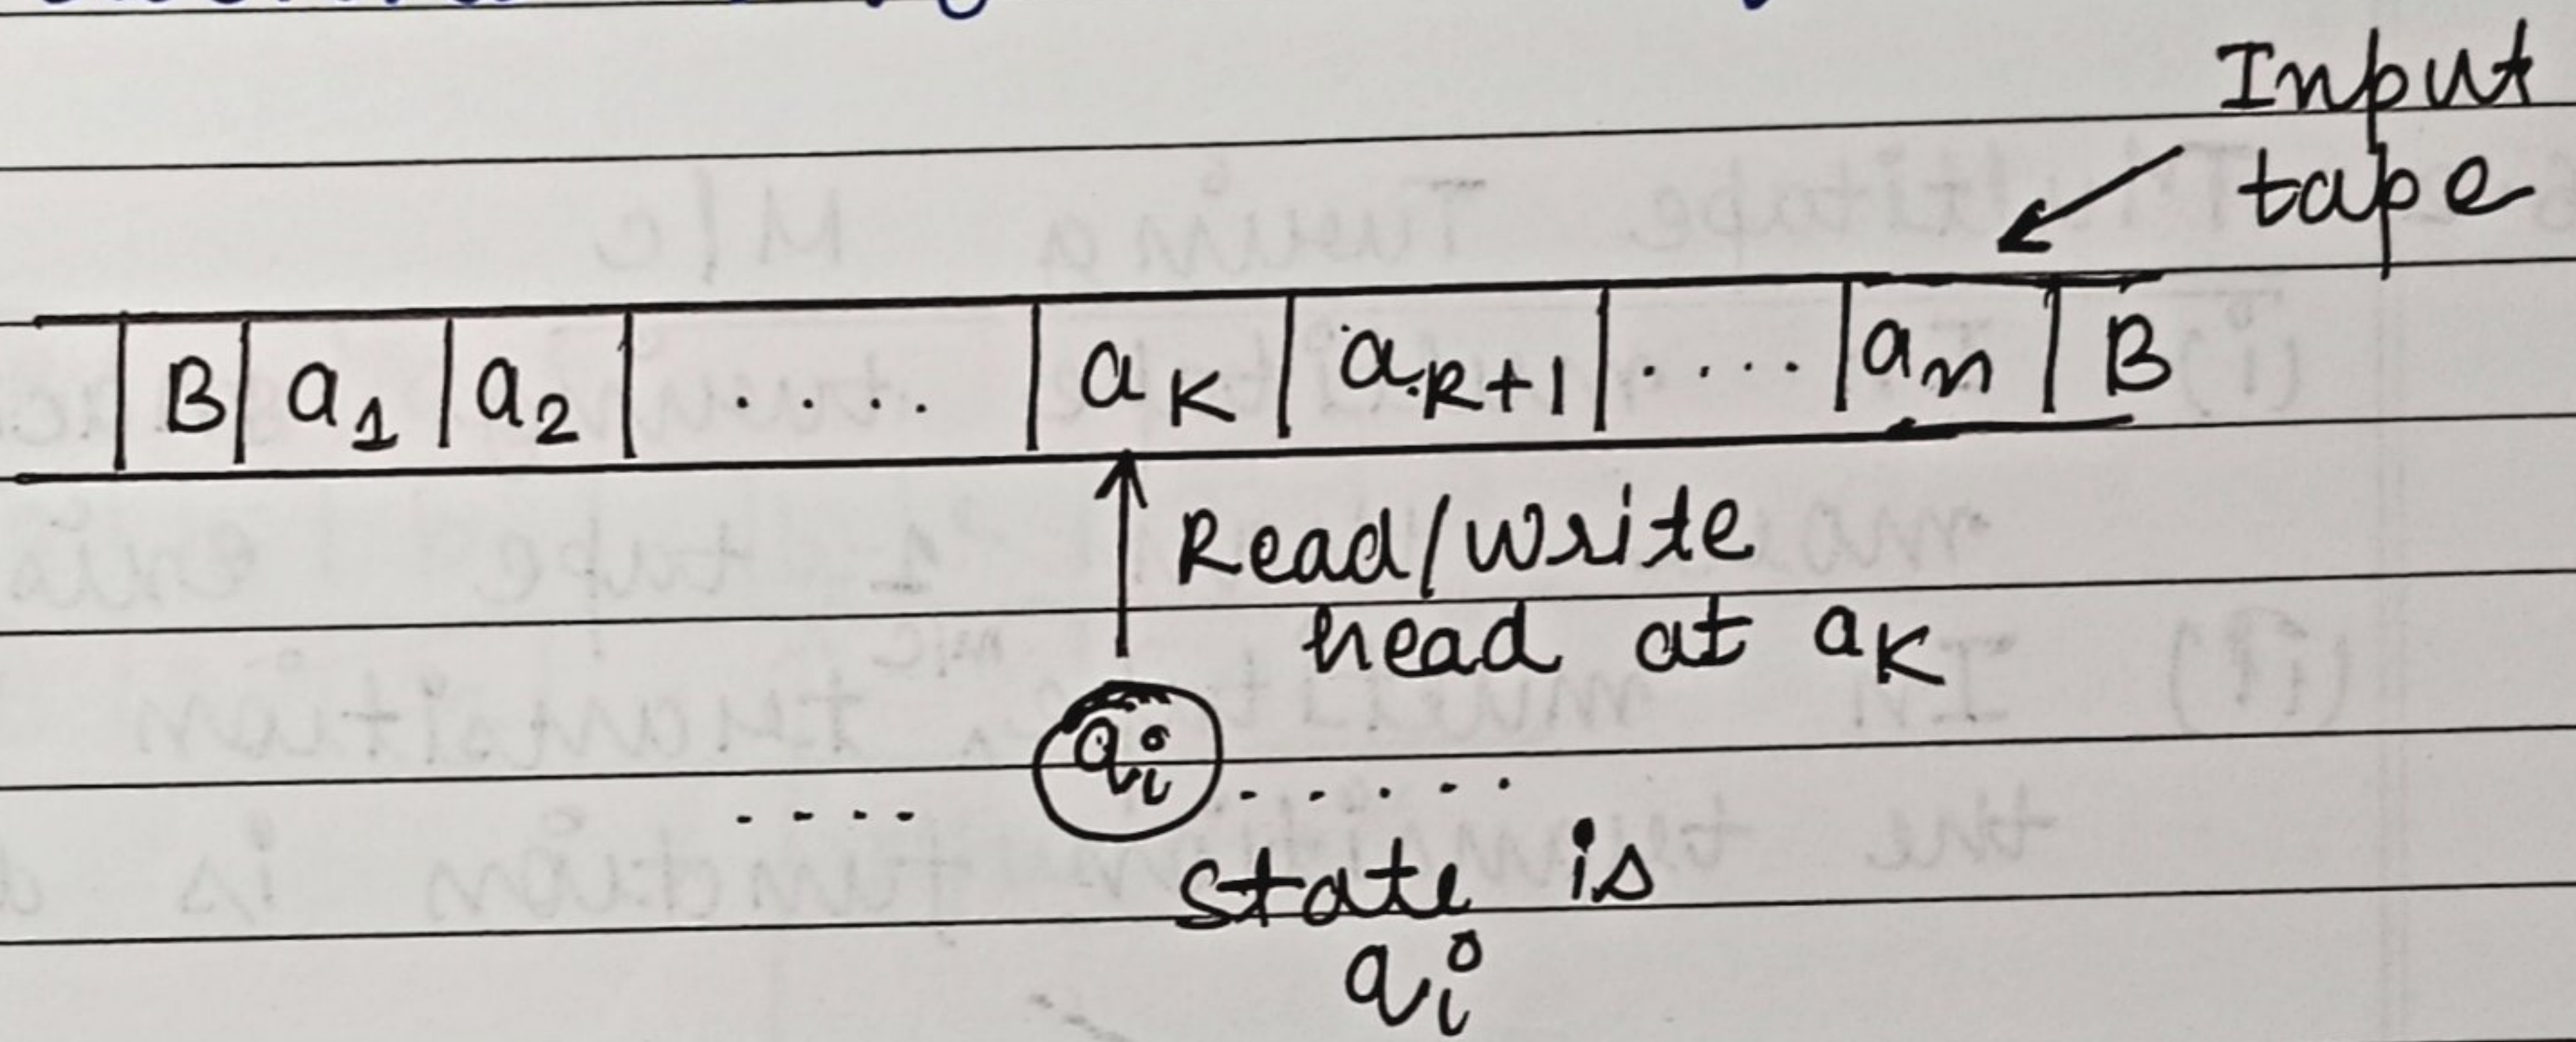 Input
tape
B a₁ a₂ .... aK aK+1 .... an B
Read/write
head at aK
.... qi .....
state is
qi